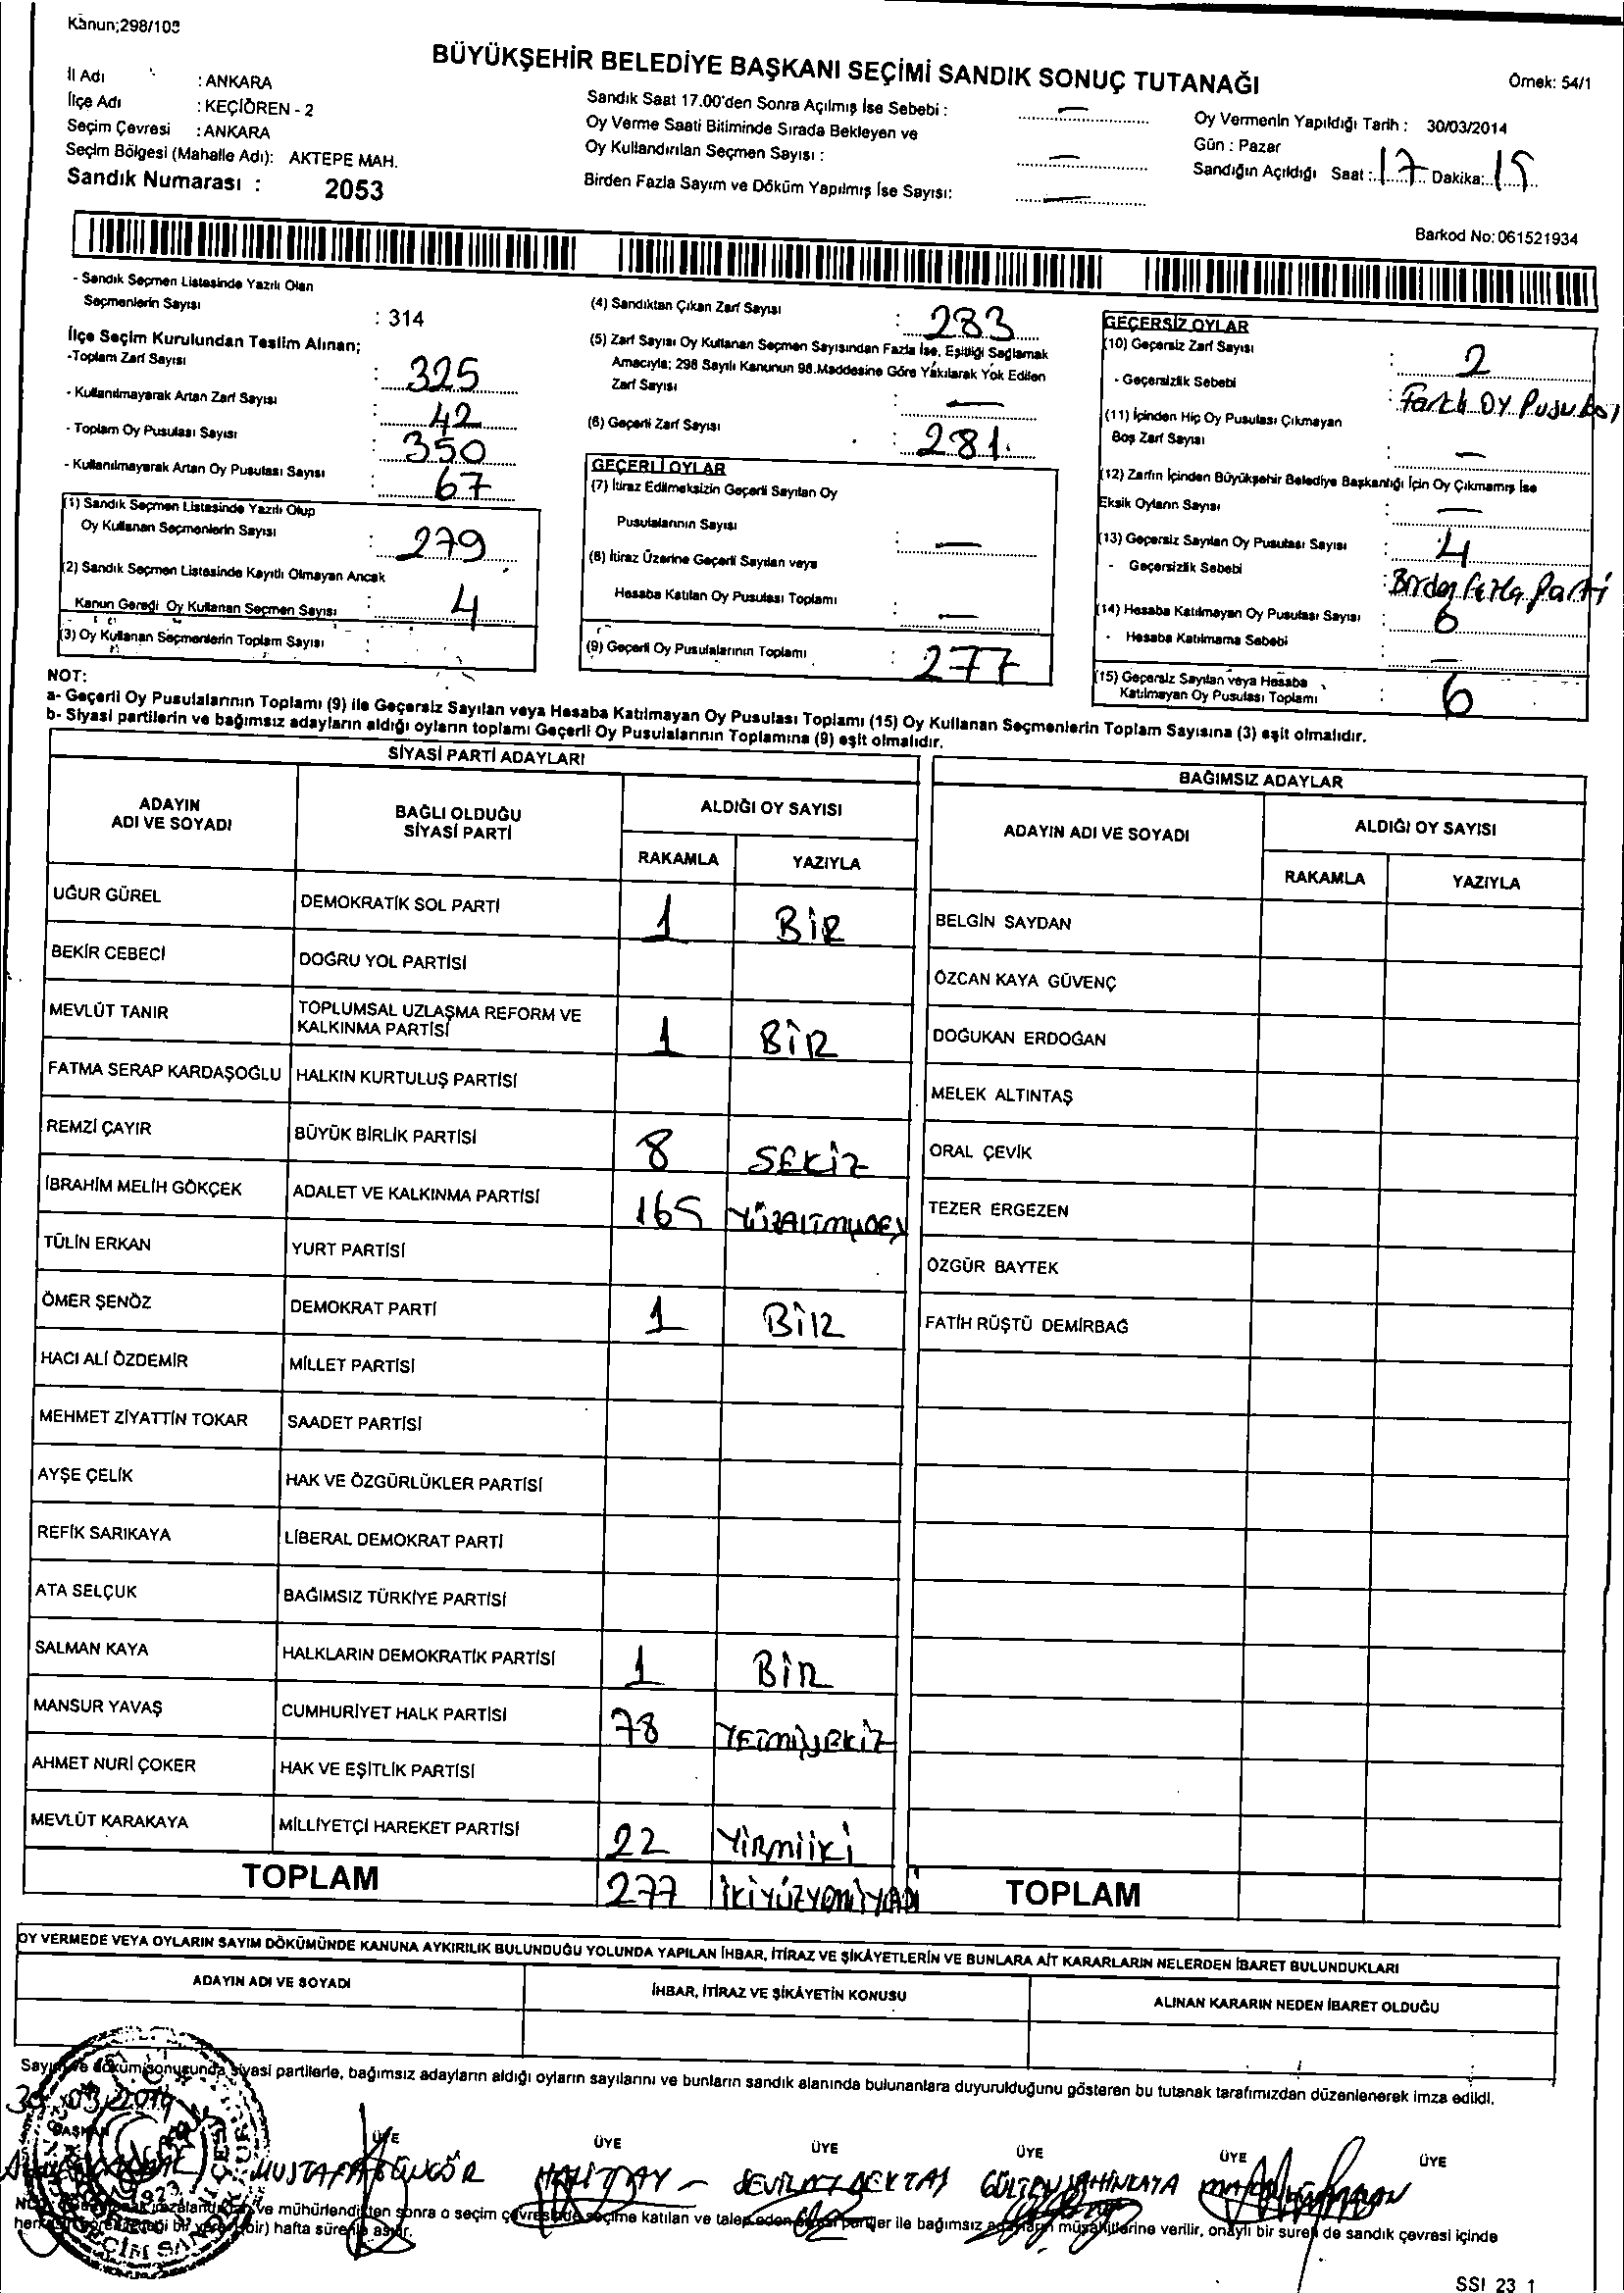 Kanun;298/103
BÜYÜKŞEHİR BELEDİYE BAŞKANI SEÇİMİ SANDIK SONUÇ TUTANAĞI
Örnek: 54/1
İl Adı : ANKARA
İlçe Adı : KEÇİÖREN - 2
Seçim Çevresi : ANKARA
Seçim Bölgesi (Mahalle Adı): AKTEPE MAH.
Sandık Numarası : 2053
Sandık Saat 17.00'den Sonra Açılmış İse Sebebi : —
Oy Verme Saati Bitiminde Sırada Bekleyen ve
Oy Kullandırılan Seçmen Sayısı : —
Birden Fazla Sayım ve Döküm Yapılmış İse Sayısı: —
Oy Vermenin Yapıldığı Tarih : 30/03/2014
Gün : Pazar
Sandığın Açıldığı Saat : 17 Dakika: 15
Barkod No: 061521934
- Sandık Seçmen Listesinde Yazılı Olan
Seçmenlerin Sayısı : 314
İlçe Seçim Kurulundan Teslim Alınan;
-Toplam Zarf Sayısı : 325
- Kullanılmayarak Artan Zarf Sayısı : 42
- Toplam Oy Pusulası Sayısı : 350
- Kullanılmayarak Artan Oy Pusulası Sayısı : 67
(1) Sandık Seçmen Listesinde Yazılı Olup
Oy Kullanan Seçmenlerin Sayısı : 279
(2) Sandık Seçmen Listesinde Kayıtlı Olmayan Ancak
Kanun Gereği Oy Kullanan Seçmen Sayısı : 4
(3) Oy Kullanan Seçmenlerin Toplam Sayısı :
(4) Sandıktan Çıkan Zarf Sayısı : 283
(5) Zarf Sayısı Oy Kullanan Seçmen Sayısından Fazla İse, Eşitliği Sağlamak
Amacıyla; 298 Sayılı Kanunun 98.Maddesine Göre Yakılarak Yok Edilen
Zarf Sayısı : —
(6) Geçerli Zarf Sayısı : 281
GEÇERLİ OYLAR
(7) İtiraz Edilmeksizin Geçerli Sayılan Oy
Pusulalarının Sayısı : —
(8) İtiraz Üzerine Geçerli Sayılan veya
Hesaba Katılan Oy Pusulası Toplamı : —
(9) Geçerli Oy Pusulalarının Toplamı : 277
GEÇERSİZ OYLAR
(10) Geçersiz Zarf Sayısı : 2
- Geçersizlik Sebebi : Farklı OY Pusulası
(11) İçinden Hiç Oy Pusulası Çıkmayan
Boş Zarf Sayısı : —
(12) Zarfın İçinden Büyükşehir Belediye Başkanlığı İçin Oy Çıkmamış İse
Eksik Oyların Sayısı : —
(13) Geçersiz Sayılan Oy Pusulası Sayısı : 4
- Geçersizlik Sebebi : Birden Fazla Parti
(14) Hesaba Katılmayan Oy Pusulası Sayısı : 6
- Hesaba Katılmama Sebebi : —
(15) Geçersiz Sayılan veya Hesaba
Katılmayan Oy Pusulası Toplamı : 6
NOT:
a- Geçerli Oy Pusulalarının Toplamı (9) ile Geçersiz Sayılan veya Hesaba Katılmayan Oy Pusulası Toplamı (15) Oy Kullanan Seçmenlerin Toplam Sayısına (3) eşit olmalıdır.
b- Siyasi partilerin ve bağımsız adayların aldığı oyların toplamı Geçerli Oy Pusulalarının Toplamına (9) eşit olmalıdır.
SİYASİ PARTİ ADAYLARI
ADAYIN ADI VE SOYADI
BAĞLI OLDUĞU SİYASİ PARTİ
ALDIĞI OY SAYISI
RAKAMLA YAZIYLA
UĞUR GÜREL DEMOKRATİK SOL PARTİ 1 BİR
BEKİR CEBECİ DOĞRU YOL PARTİSİ
MEVLÜT TANIR TOPLUMSAL UZLAŞMA REFORM VE KALKINMA PARTİSİ 1 BİR
FATMA SERAP KARDAŞOĞLU HALKIN KURTULUŞ PARTİSİ
REMZİ ÇAYIR BÜYÜK BİRLİK PARTİSİ 8 SEKİZ
İBRAHİM MELİH GÖKÇEK ADALET VE KALKINMA PARTİSİ 165
TÜLİN ERKAN YURT PARTİSİ
ÖMER ŞENÖZ DEMOKRAT PARTİ 1 BİR
HACI ALİ ÖZDEMİR MİLLET PARTİSİ
MEHMET ZİYATTİN TOKAR SAADET PARTİSİ
AYŞE ÇELİK HAK VE ÖZGÜRLÜKLER PARTİSİ
REFİK SARIKAYA LİBERAL DEMOKRAT PARTİ
ATA SELÇUK BAĞIMSIZ TÜRKİYE PARTİSİ
SALMAN KAYA HALKLARIN DEMOKRATİK PARTİSİ 1 BİR
MANSUR YAVAŞ CUMHURİYET HALK PARTİSİ 78 YETMİŞSEKİZ
AHMET NURİ ÇOKER HAK VE EŞİTLİK PARTİSİ
MEVLÜT KARAKAYA MİLLİYETÇİ HAREKET PARTİSİ 22 YİRMİİKİ
TOPLAM 277
BAĞIMSIZ ADAYLAR
ADAYIN ADI VE SOYADI
ALDIĞI OY SAYISI
RAKAMLA YAZIYLA
BELGİN SAYDAN
ÖZCAN KAYA GÜVENÇ
DOĞUKAN ERDOĞAN
MELEK ALTINTAŞ
ORAL ÇEVİK
TEZER ERGEZEN
ÖZGÜR BAYTEK
FATİH RÜŞTÜ DEMİRBAĞ
TOPLAM
OY VERMEDE VEYA OYLARIN SAYIM DÖKÜMÜNDE KANUNA AYKIRILIK BULUNDUĞU YOLUNDA YAPILAN İHBAR, İTİRAZ VE ŞİKÂYETLERİN VE BUNLARA AİT KARARLARIN NELERDEN İBARET BULUNDUKLARI
ADAYIN ADI VE SOYADI
İHBAR, İTİRAZ VE ŞİKÂYETİN KONUSU
ALINAN KARARIN NEDEN İBARET OLDUĞU
Sayım ve dökümü sonucunda siyasi partilerle, bağımsız adayların aldığı oyların sayılarını ve bunların sandık alanında bulunanlara duyurulduğunu gösteren bu tutanak tarafımızdan düzenlenerek imza edildi.
30/03/2014
BAŞKAN ÜYE ÜYE ÜYE ÜYE ÜYE ÜYE
MUSTAFA GÜNGÖR HALİT AY SEVİLAY BEKTAŞ GÜLTEN ŞAHİNKAYA
ve mühürlendikten sonra o seçim çevresinde seçime katılan ve talep eden siyasi partiler ile bağımsız adayların müşahitlerine verilir, onaylı bir sureti de sandık çevresi içinde
(bir) hafta süreyle asılır.
SSI 23 1